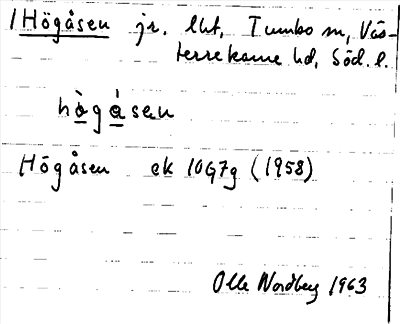 /Högåsen jr. lht, Tumbo sn, Väs-
terrekarne hd, Söd. l.
hò̲gá̲sen
Högåsen ek 10G7g (1958)
Olle Nordberg 1963